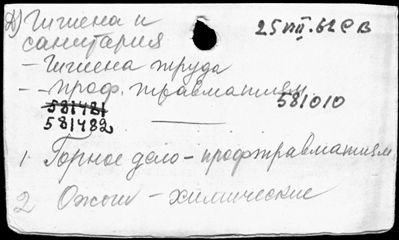 Д) Гигиена и 25 VIII. 62 РВ
санитария
– Гигиена труда
– – проф. травматизм
581481 581010
581482
1. Горное дело – профтравматизм
2 Ожоги – химические